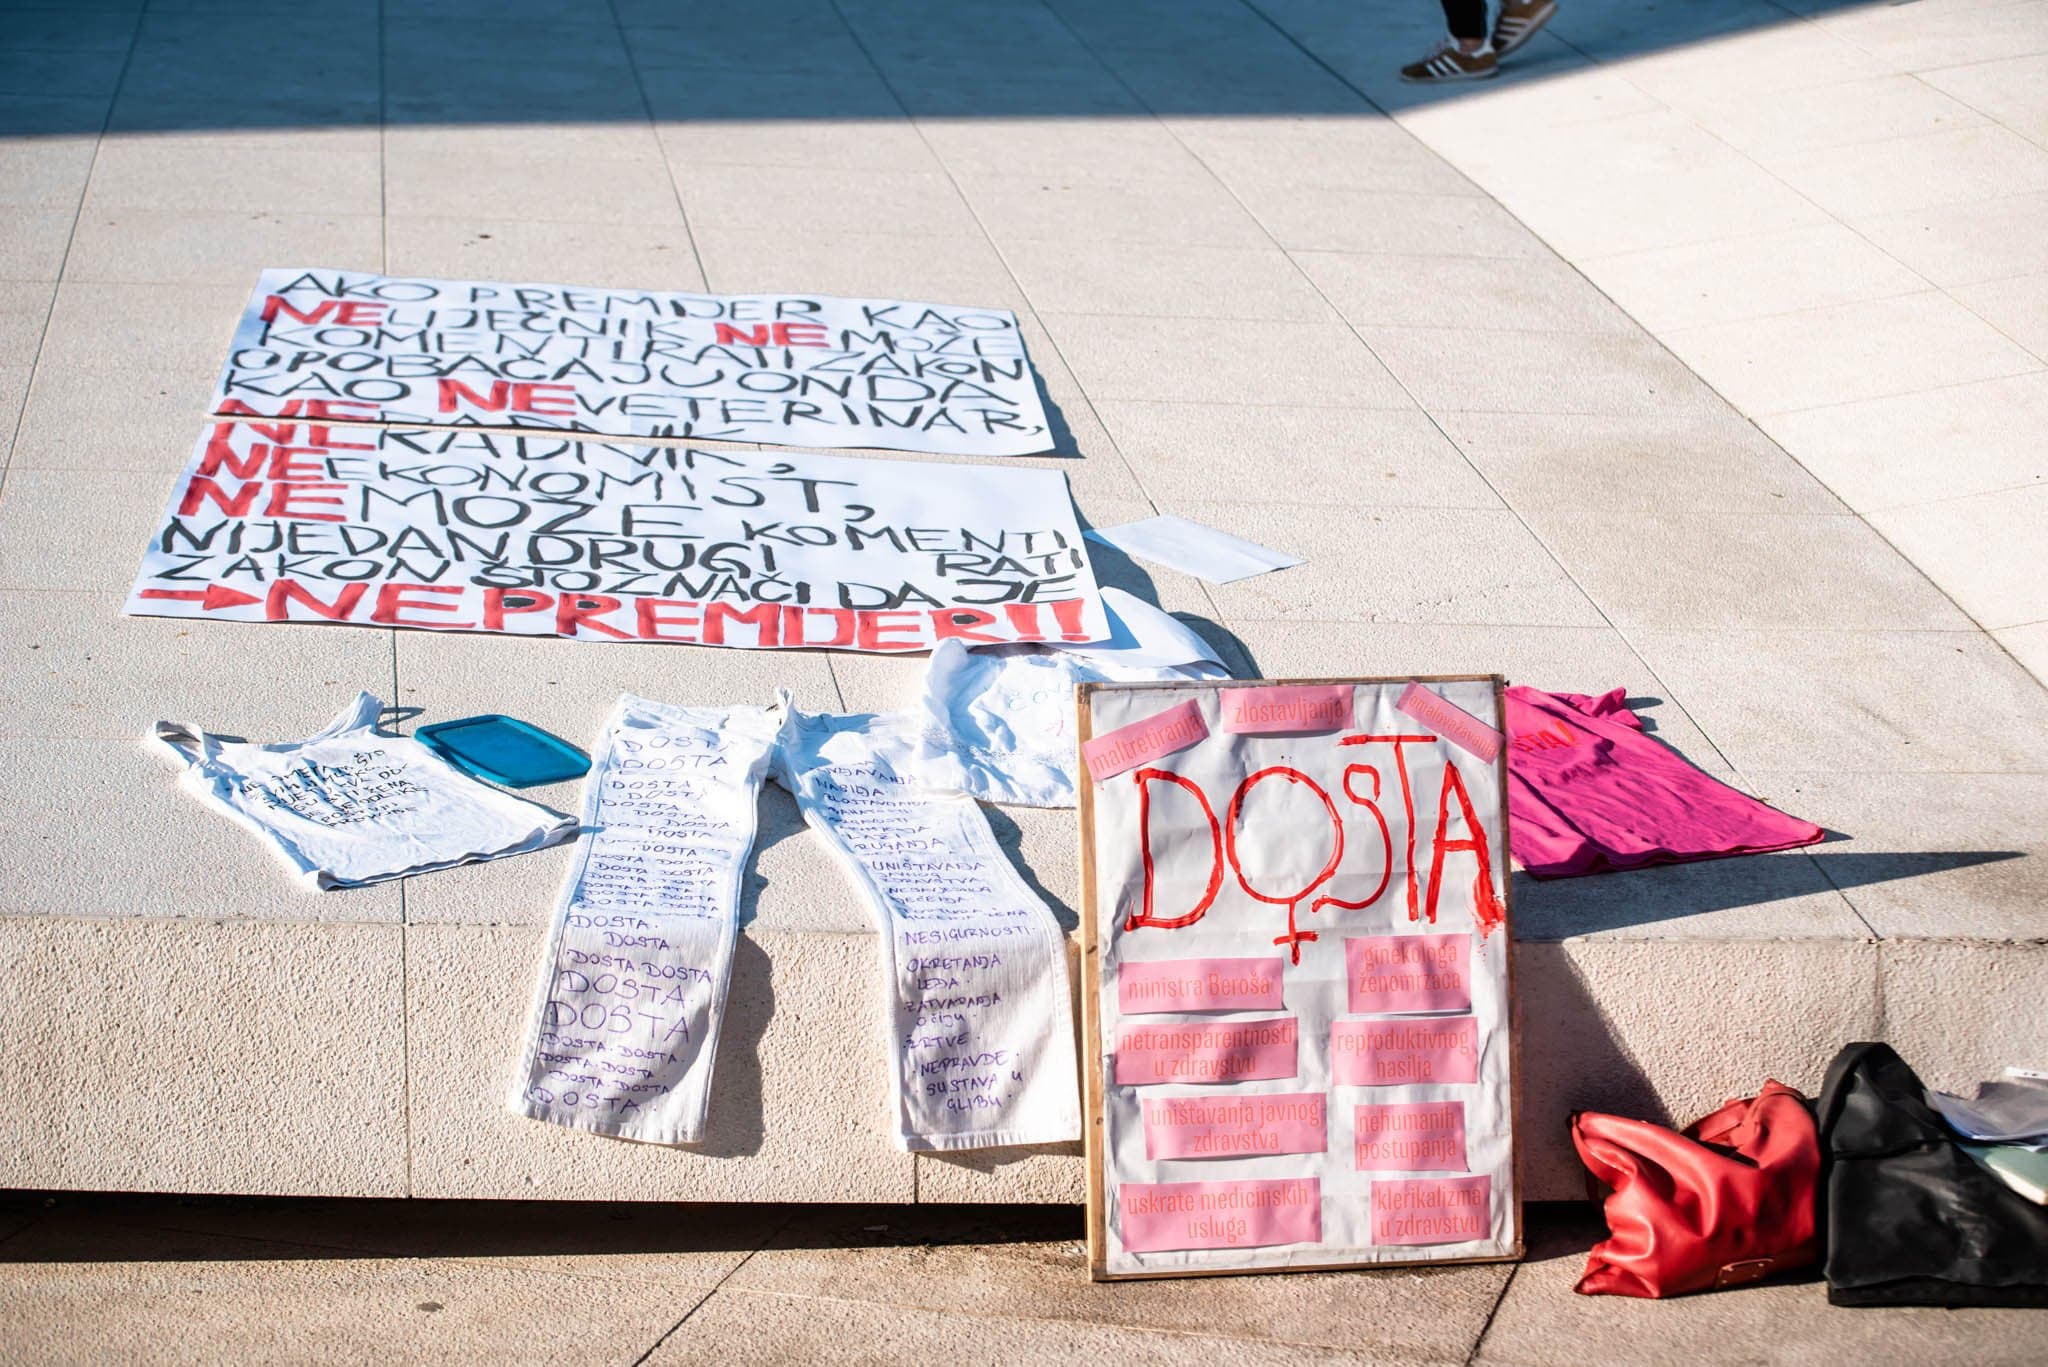 AKO PREMIJER KAO
NELIJEČNIK NE MOŽE
KOMENTIRATI ZAKON
O POBAČAJU ONDA
KAO NEVETERINAR,
NEEKONOMIST,
NE MOŽE KOMENTI
NIJEDAN DRUGI RATI
ZAKON ŠTO ZNAČI DA JE
→ NEPREMIJER!!
DOSTA
DOSTA
DOSTA
DOSTA
DOSTA
DOSTA
DOSTA DOSTA
DOSTA
DOSTA
DOSTA DOSTA
DOSTA DOSTA
DOSTA DOSTA
DOSTA DOSTA
DOSTA DOSTA
DOSTA.
DOSTA.
DOSTA. DOSTA
DOSTA.
DOSTA
DOSTA. DOSTA.
DOSTA. DOSTA.
DOSTA. DOSTA
DOSTA.
NASILJA.
ZLOSTAVLJANJA
LAŽI
RUGANJA
UNIŠTAVANJA
JAVNOG
ZDRAVSTVA
LIJEČENJA
NESIGURNOSTI.
OKRETANJA
LEĐA.
ZATVARANJA
OČIJU.
ŽRTVE.
NEPRAVDE.
SUSTAVA U
GLIBU.
maltretiranja
zlostavljanja
omalovažavanja
DOSTA
ministra Beroša
ginekologa
ženomrzaca
netransparentnosti
u zdravstvu
reproduktivnog
nasilja
uništavanja javnog
zdravstva
nehumanih
postupanja
uskrate medicinskih
usluga
klerikalizma
u zdravstvu